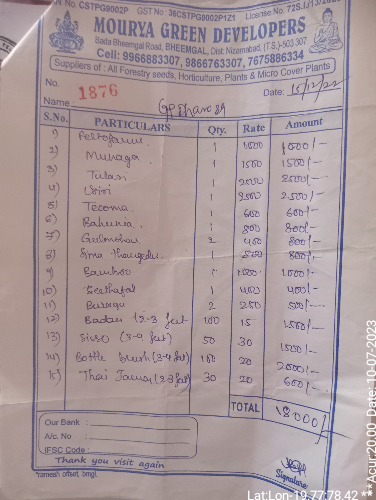 PAN No: CSTPG9002P GST No: 36CSTPG9002P1Z1 License No: 72S.1/13/202
MOURYA GREEN DEVELOPERS
Bada Bheemgal Road, BHEEMGAL, Dist. Nizamabad, (T.S.)-503 307
Cell: 9966883307, 9866763307, 7675886334
Suppliers of : All Forestry seeds, Horticulture, Plants & Micro Cover Plants
No. 1876 Date: 15/12/22
Name
S.No. PARTICULARS Qty. Rate Amount
1) Peltoforum 1 1000 1000/-
2) Munaga 1 1500 1500/-
3) Tulasi 1 2500 2500/-
4) 1 2500 2500/-
5) Tecoma 1 600 600/-
6) Bahunia 1 800 800/-
7) Gulmohar 2 400 800/-
8) Sima Thangedu 1 800/-
9) Bamboo 1 1000 1000/-
10) Seethafal 1 400 400/-
11) 2 250 500/-
12) Badam (2-3 feet 100 15 1500/-
13) Sisso (3-4 feet) 50 30 1500/-
14) Bottle brush (3-4 feet) 100 20 2000/-
15) Thai Jaman (2-3 feet) 30 20 600/-
TOTAL 18000/-
Our Bank :
A/c. No :
IFSC Code :
Thank you visit again
Signature
*ramesh offset, bmgl.
Lat:Lon-19.77,78.42 **Acur:20.00 Date:10-07-2023